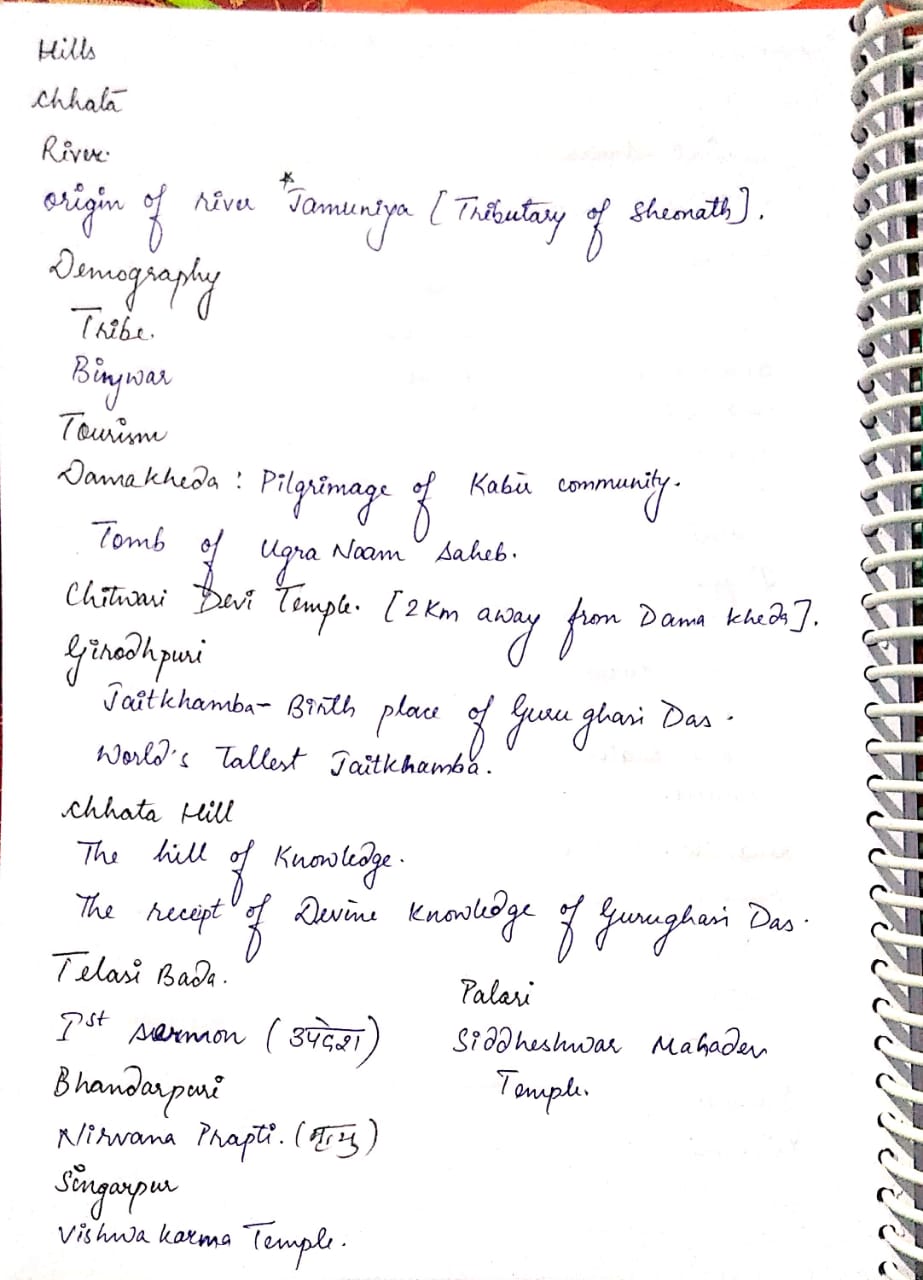 Hills
Chhata
River.
Origin of river *Jamuniya [Tributary of Sheonath].
Demography
Tribe.
Binjwar
Tourism
Damakheda : Pilgrimage of Kabir community.
Tomb of Ugra Naam Saheb.
Chitwari Devi Temple. [2 Km away from Dama kheda].
Girodhpuri
Jaitkhamba- Birth place of Guru ghasi Das.
World's Tallest Jaitkhamba.
Chhata Hill
The hill of Knowledge.
The receipt of Devine Knowledge of Gurughasi Das.
Telasi Bada.
Ist sermon (उपदेश)
Bhandarpuri
Nirvana Prapti. (मृत्यु)
Singarpur
Vishwa karma Temple.
Palari
Siddheshwar Mahadev
Temple.